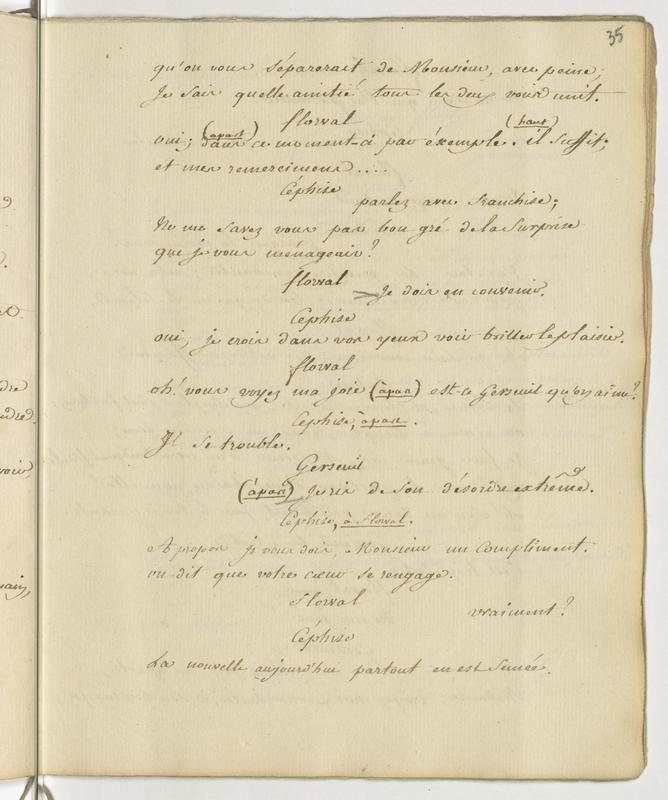 35
qu'on vous séparerait de Monsieur, avec peine;
Je sais quelle amitié tous les deux vous unit.
florval
oui; (apart) dans ce moment-ci par éxemple. (haut) il suffit;
et mes remercimens....
Céphise
parlez avec franchise;
Ne me savez vous pas bon gré de la surprise
que je vous ménageais?
florval
Je dois en convenir.
Céphise
oui, je crois dans vos yeux voir briller le plaisir.
florval
oh! vous voyez ma joie (àpart) est-ce Gerseuil qu'on aime?
Céphise, àpart.
Il se trouble.
Gerseuil
(àpart) Je ris de son désordre extrême.
Céphise, à Florval.
A propos je vous dois, Monsieur un Compliment.
on dit que votre cœur se rengage.
florval
vraiment?
Céphise
La nouvelle aujourd'hui partout en est semée.